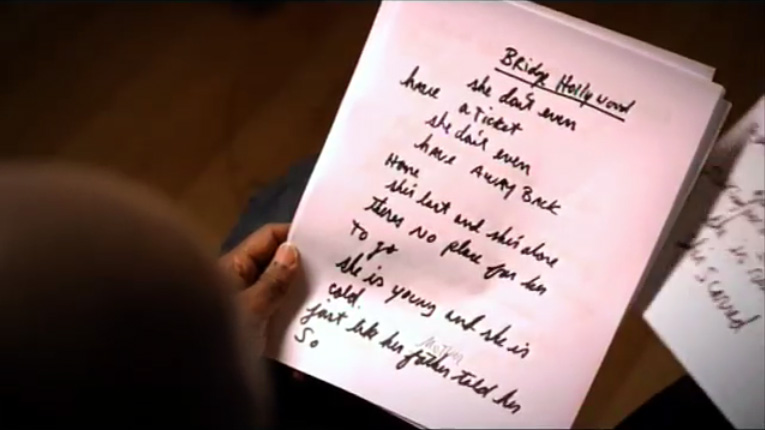 Bridge Hollywood
she don't even
have a Ticket
she don't even
have Away Back
Home
she's lost and she's alone
theres No place for her
To go
she is young and she is
cold.
Mother
just like her father told her
So
scared